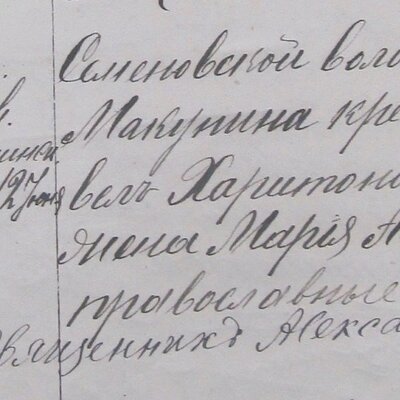 Семеновской воло
Макунина кре
велъ Харитоно
жена Марія А
православные
12 Іюня
священникъ Алекса